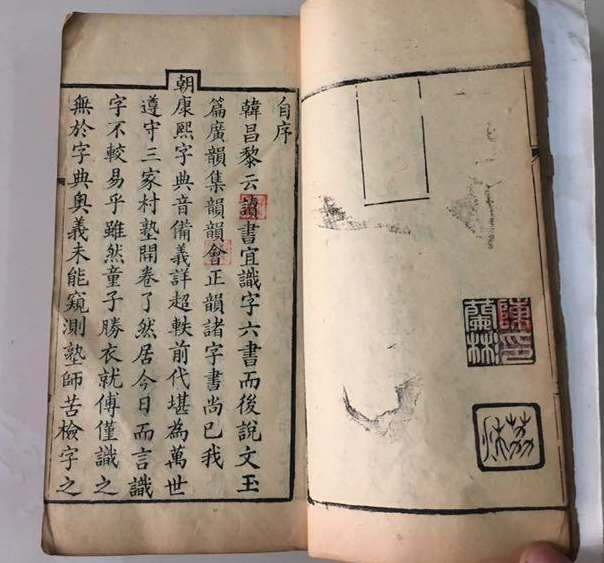 陳印
蘭林
自序
韓昌黎云讀書宜識字六書而後說文玉
篇廣韻集韻韻會正韻諸字書尚已我
朝康熙字典音備義詳超軼前代堪為萬世
遵守三家村塾開卷了然居今日而言識
字不較易乎雖然童子勝衣就傅僅識之
無於字典奧義未能窺測塾師苦檢字之